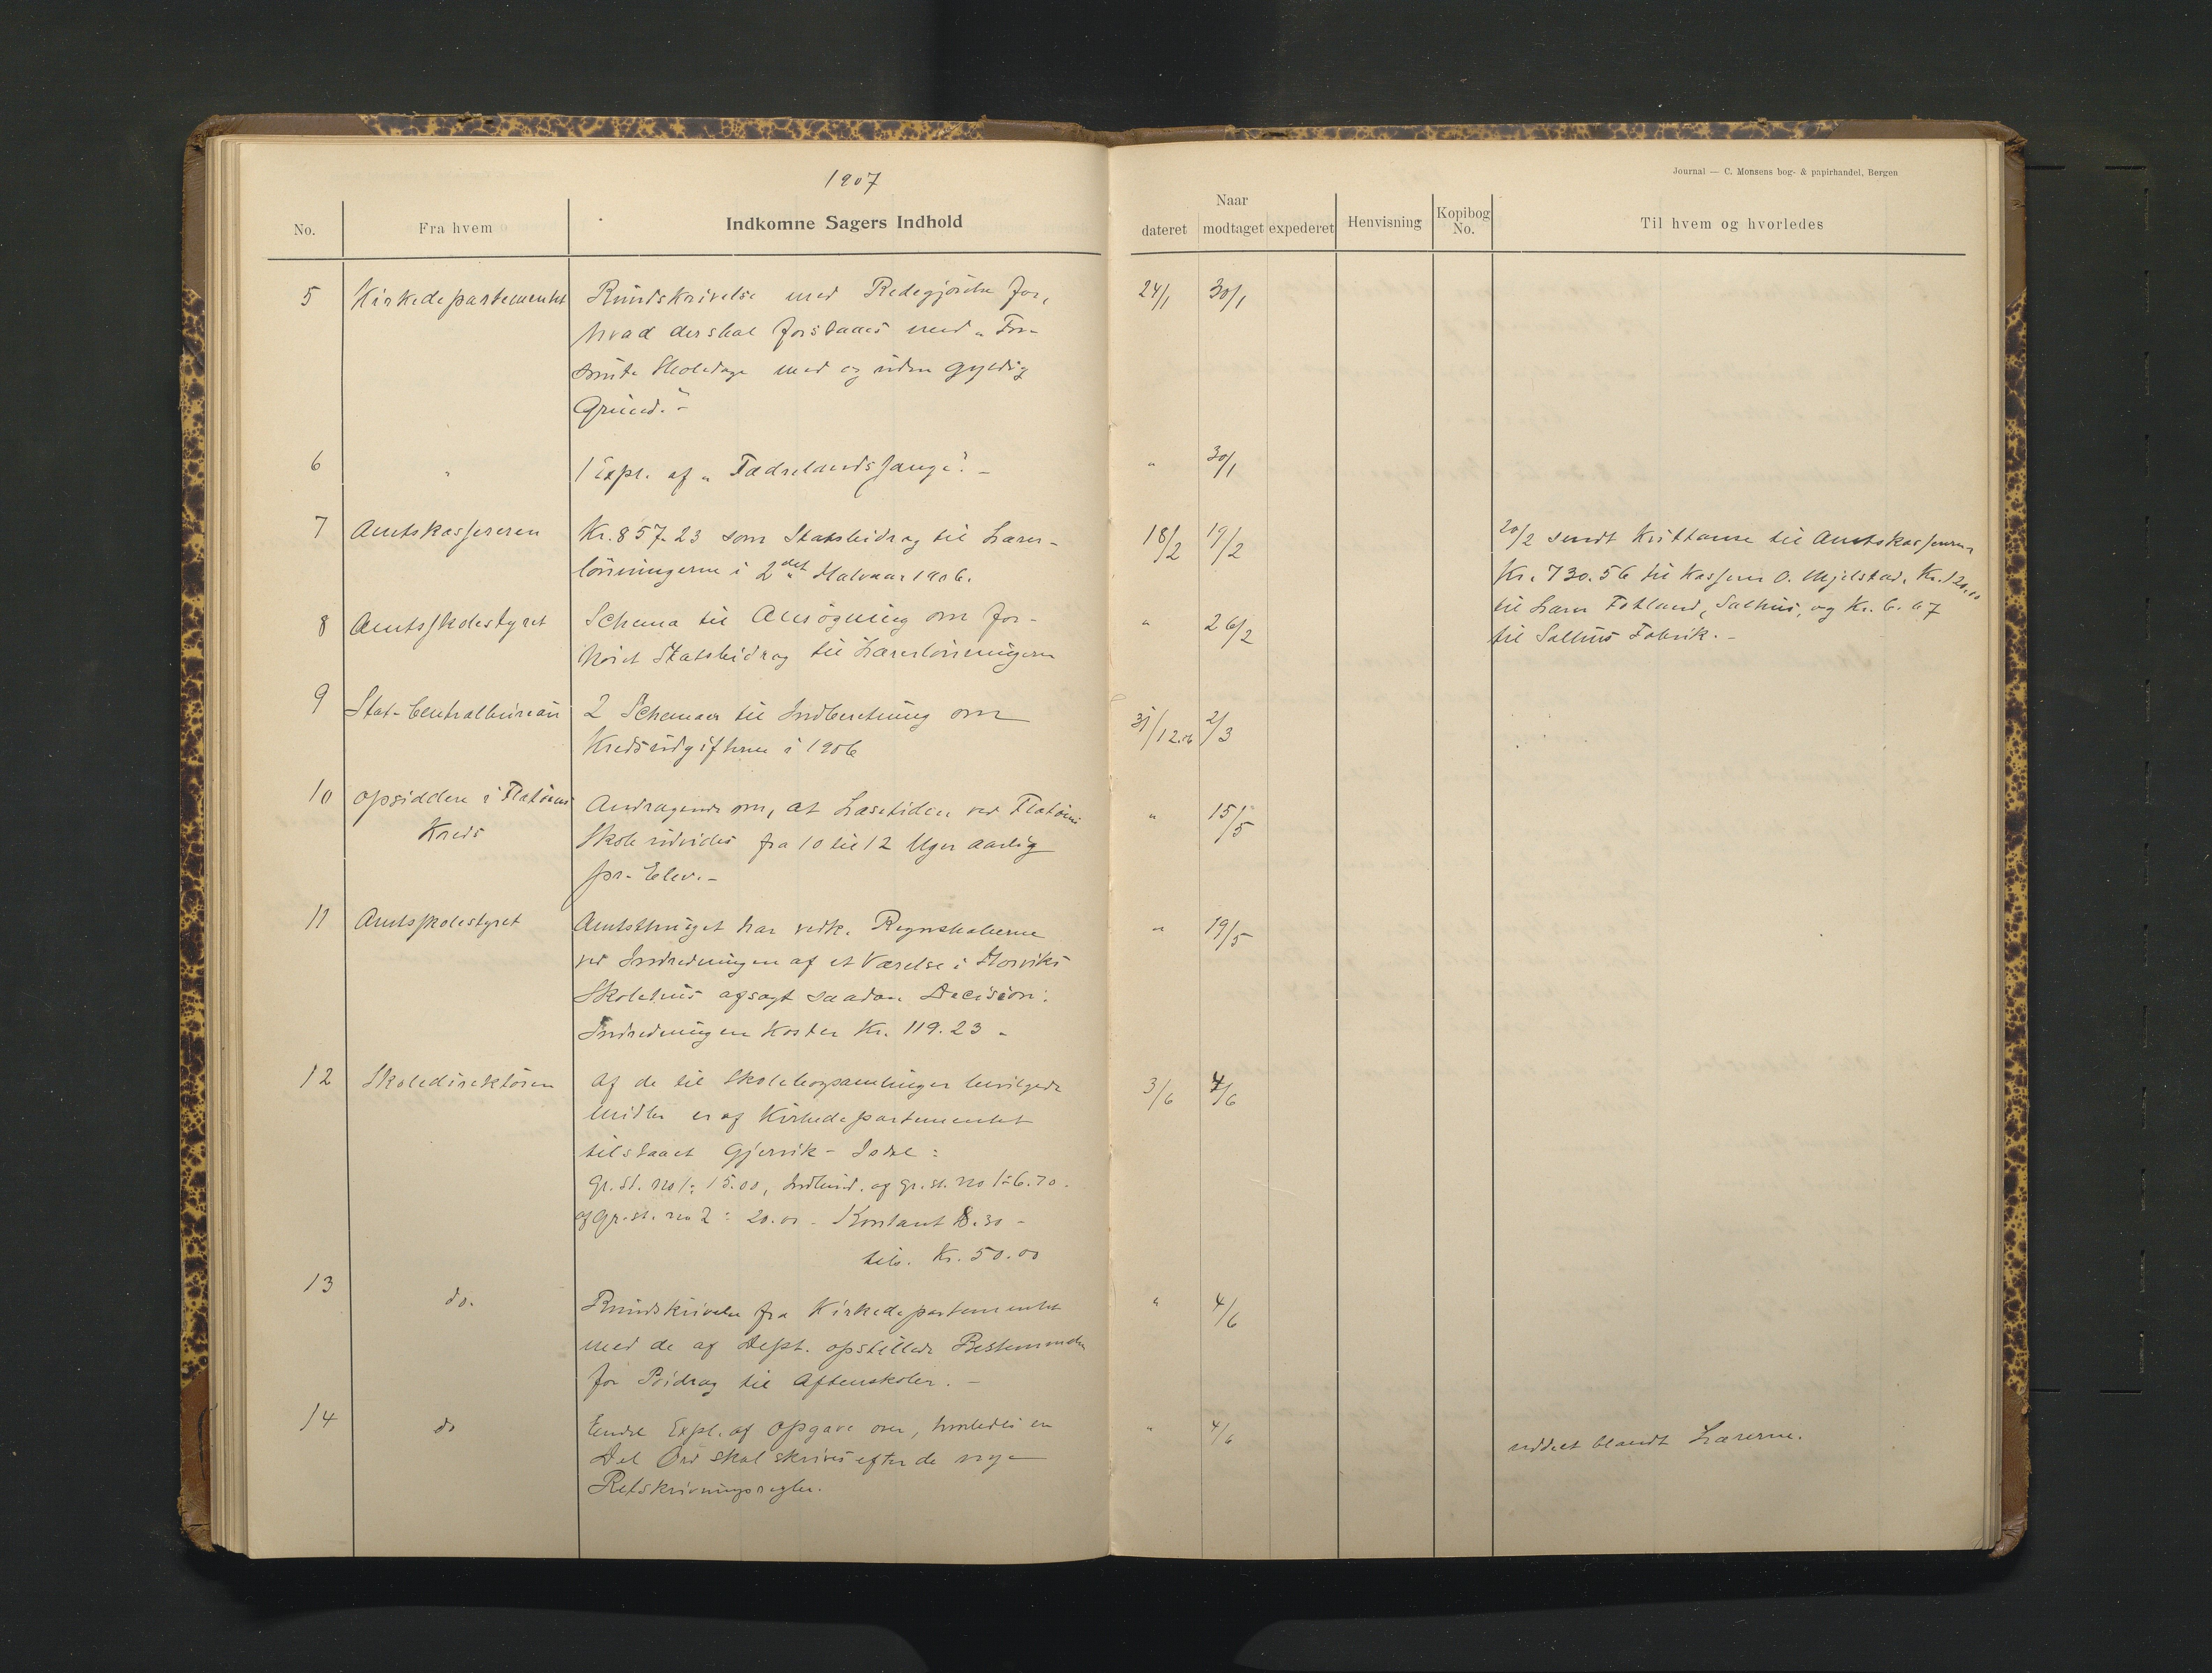 1907
Journal — C. Monsens bog- & papirhandel, Bergen
No.
Fra hvem
Indkomne Sagers Indhold
Naar
dateret
modtaget
expederet
Henvisning
Kopibog No.
Til hvem og hvorledes
5 Kirkedepartementet Rundskrivelse med Redegjörelse for, 24/1 30/1
hvad der skal forstaaes med "For-
sömte Skoledage med og uden gyldig
Grund." -
6 " 1 Expl. af "Fædrelandssange". - " 30/1
7 Amtskassereren Kr. 857.23 som Statsbidrag til Lærer- 18/2 19/2 20/2 sendt Kvittance til Amtskasserer
lönningerne i 2det Halvaar 1906. Kr. 730.56 til Kasserer O. Mjelstad, Kr. 120.00
til Lærer Fotland, Salhus, og Kr. 6.67
til Salhus Fabrik. -
8 Amtsskolestyret Schema til Ansögning om for- " 26/2
höiet Statsbidrag til Lærerlönningerne
9 Stat. Centralbureau 2 Schemaer til Indberetning om 31/12.06 2/3
Kredsudgifterne i 1906
10 Opsiddere i Flatöens Andragende om, at Læsetiden ved Flatöens " 15/5
Kreds Skole udvides fra 10 til 12 Uger aarlig
pr. Elev. -
11 Amtsskolestyret Amtsthinget har vedk. Regnskaberne " 19/5
ved Indredningen af et Værelse i Horviks
Skolehus afsagt saadan Decision:
Indredningen koster Kr. 119.23 -
12 Skoledirektören Af de til Skolebogsamlinger bevilgede 3/6 4/6
Midler er af Kirkedepartementet
tilstaaet Gjervik-Isdal:
Gr. st. no 1: 15.00, Indbind. af gr. st. no 1: 6.70.
af gr. st. no 2: 20.00 - Kontant 8.30 -
tils. Kr. 50.00
13 do. Rundskrivelse fra Kirkedepartementet " 4/6
med de af Dept. opstillede Bestemmelser
for Bidrag til Aftenskoler. -
14 do Endel Expl. af Opgave over, hvorledes en " 4/6 uddelt blandt Lærerne.
Del Ord skal skrives efter de nye
Retskrivningsregler.